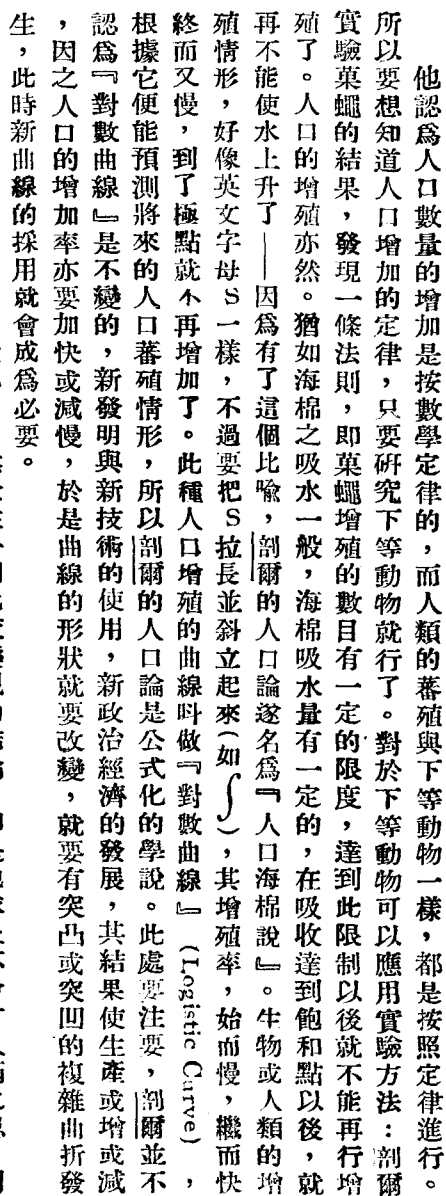 他認爲人口數量的增加是按數學定律的，而人類的蕃殖與下等動物一樣，都是按照定律進行。
所以要想知道人口增加的定律，只要硏究下等動物就行了。對於下等動物可以應用實驗方法：剖爾
實驗菓蠅的結果，發現一條法則，卽菓蠅增殖的數目有一定的限度，達到此限制以後就不能再行增
殖了。人口的增殖亦然。猶如海棉之吸水一般，海棉吸水量有一定的，在吸收達到飽和點以後，就
再不能使水上升了——因爲有了這個比喩，剖爾的人口論遂名爲『人口海棉說』。生物或人類的增
殖情形，好像英文字母S一樣，不過要把S拉長並斜立起來（如∫），其增殖率，始而慢，繼而快
終而又慢，到了極點就不再增加了。此種人口增殖的曲線呌做『對數曲線』（Logistic Curve），
根據它便能預測將來的人口蕃殖情形，所以剖爾的人口論是公式化的學說。此處要注要，剖爾並不
認爲『對數曲線』是不變的，新發明與新技術的使用，新政治經濟的發展，其結果使生產或增或減
，因之人口的增加率亦要加快或減慢，於是曲線的形狀就要改變，就要有突凸或突凹的複雜曲折發
生，此時新曲線的採用就會成爲必要。